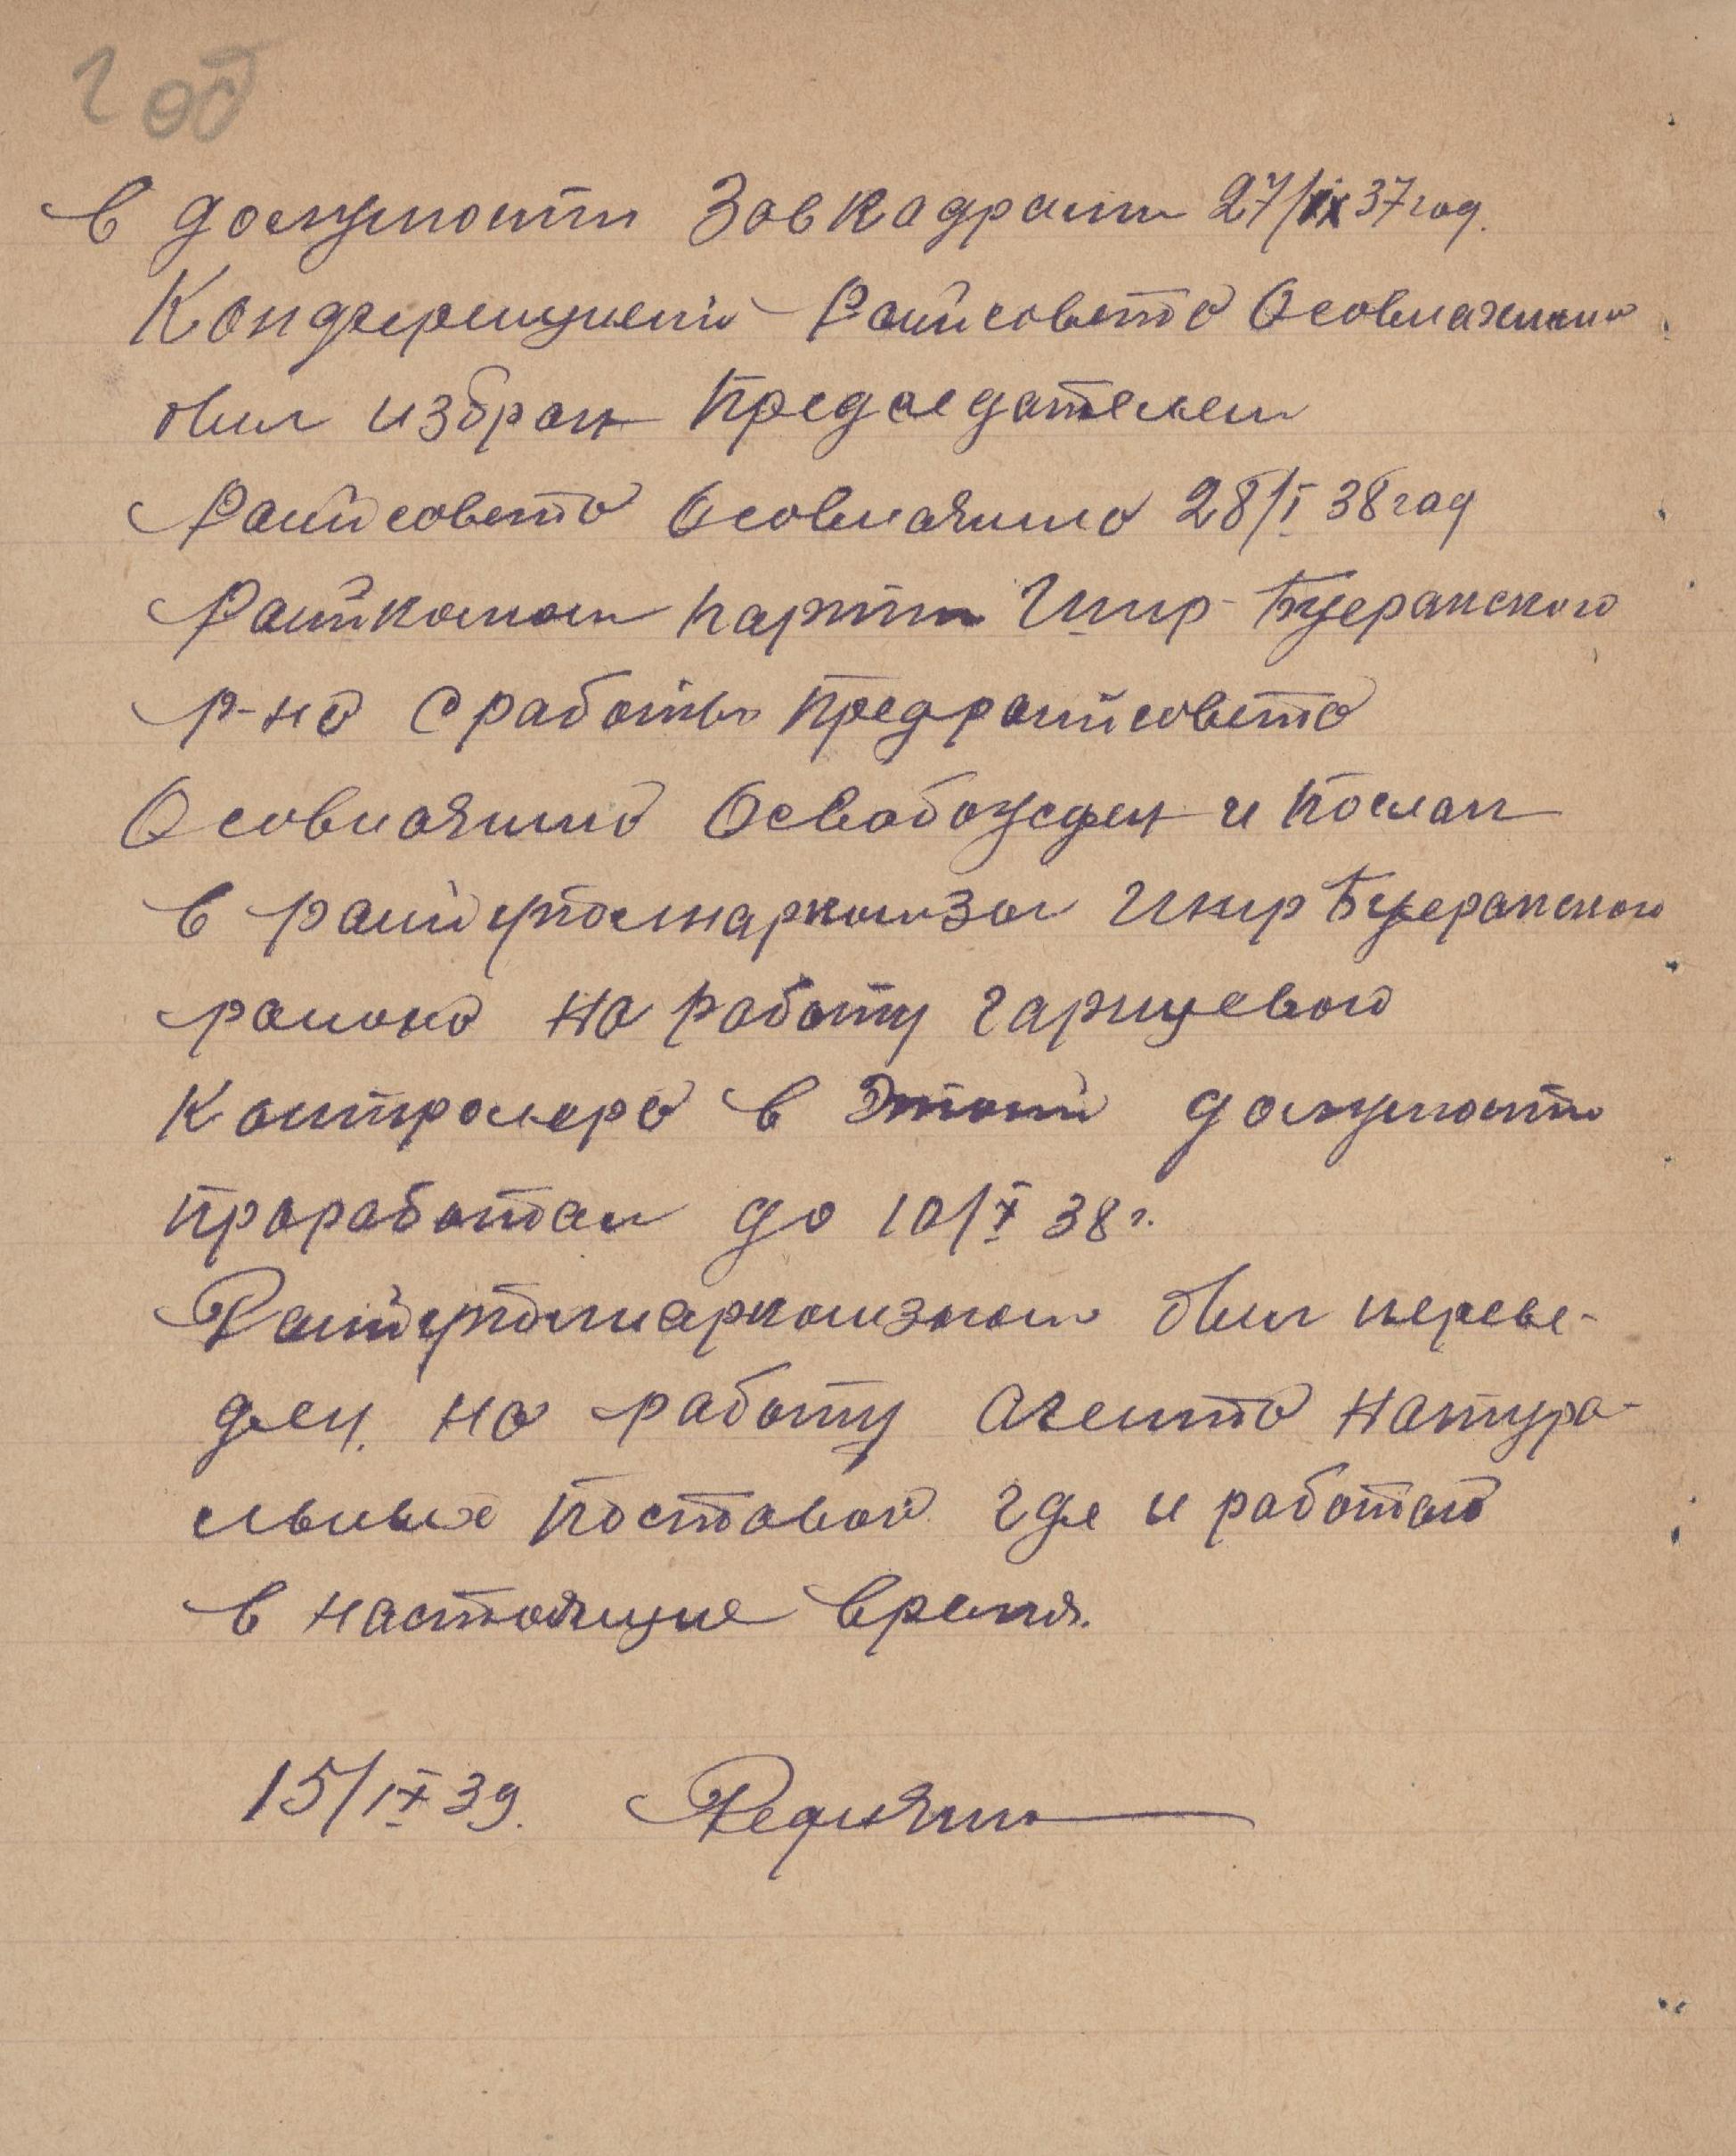 2 об
в должности Зав кадрами 27/IX 37 год.
Конференцией Райсовета Осовиахима
был избран председателем
Райсовета Осовиахима 28/I 38 год
Райкомом партии Шир-Буеракского
р-на с работы предрайсовета
Осовиахима Освобожден и послан
в райуполнаркомзаг Шир Буеракского
района на работу гарнцевого
контролера в этой должности
проработал до 10/X 38 г.
Райуполнаркомзагом был переве-
ден на работу Агента натура-
льных поставок где и работаю
в настоящие время.
15/IX 39.